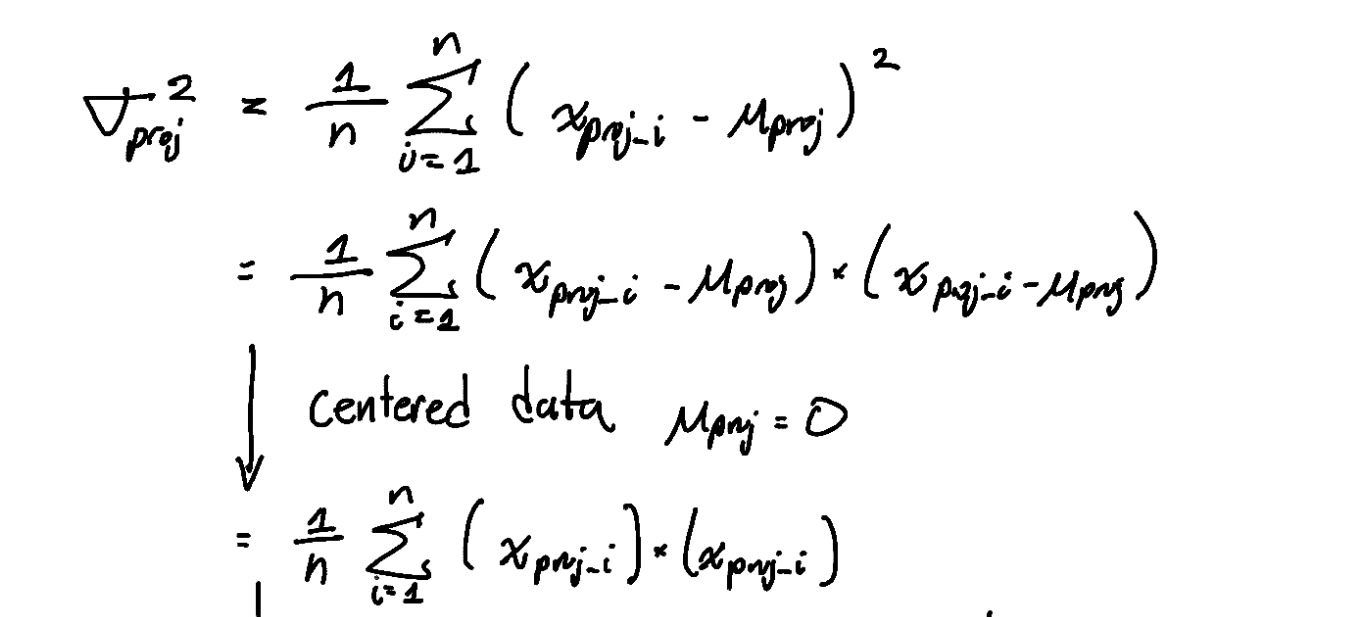 σ²_proj = 1/n ∑_{i=1}^{n} ( x_{proj_i} - μ_{proj} )²
= 1/n ∑_{i=1}^{n} ( x_{proj_i} - μ_{proj} ) × ( x_{proj_i} - μ_{proj} )
↓ centered data μ_{proj} = 0
= 1/n ∑_{i=1}^{n} ( x_{proj_i} ) × ( x_{proj_i} )